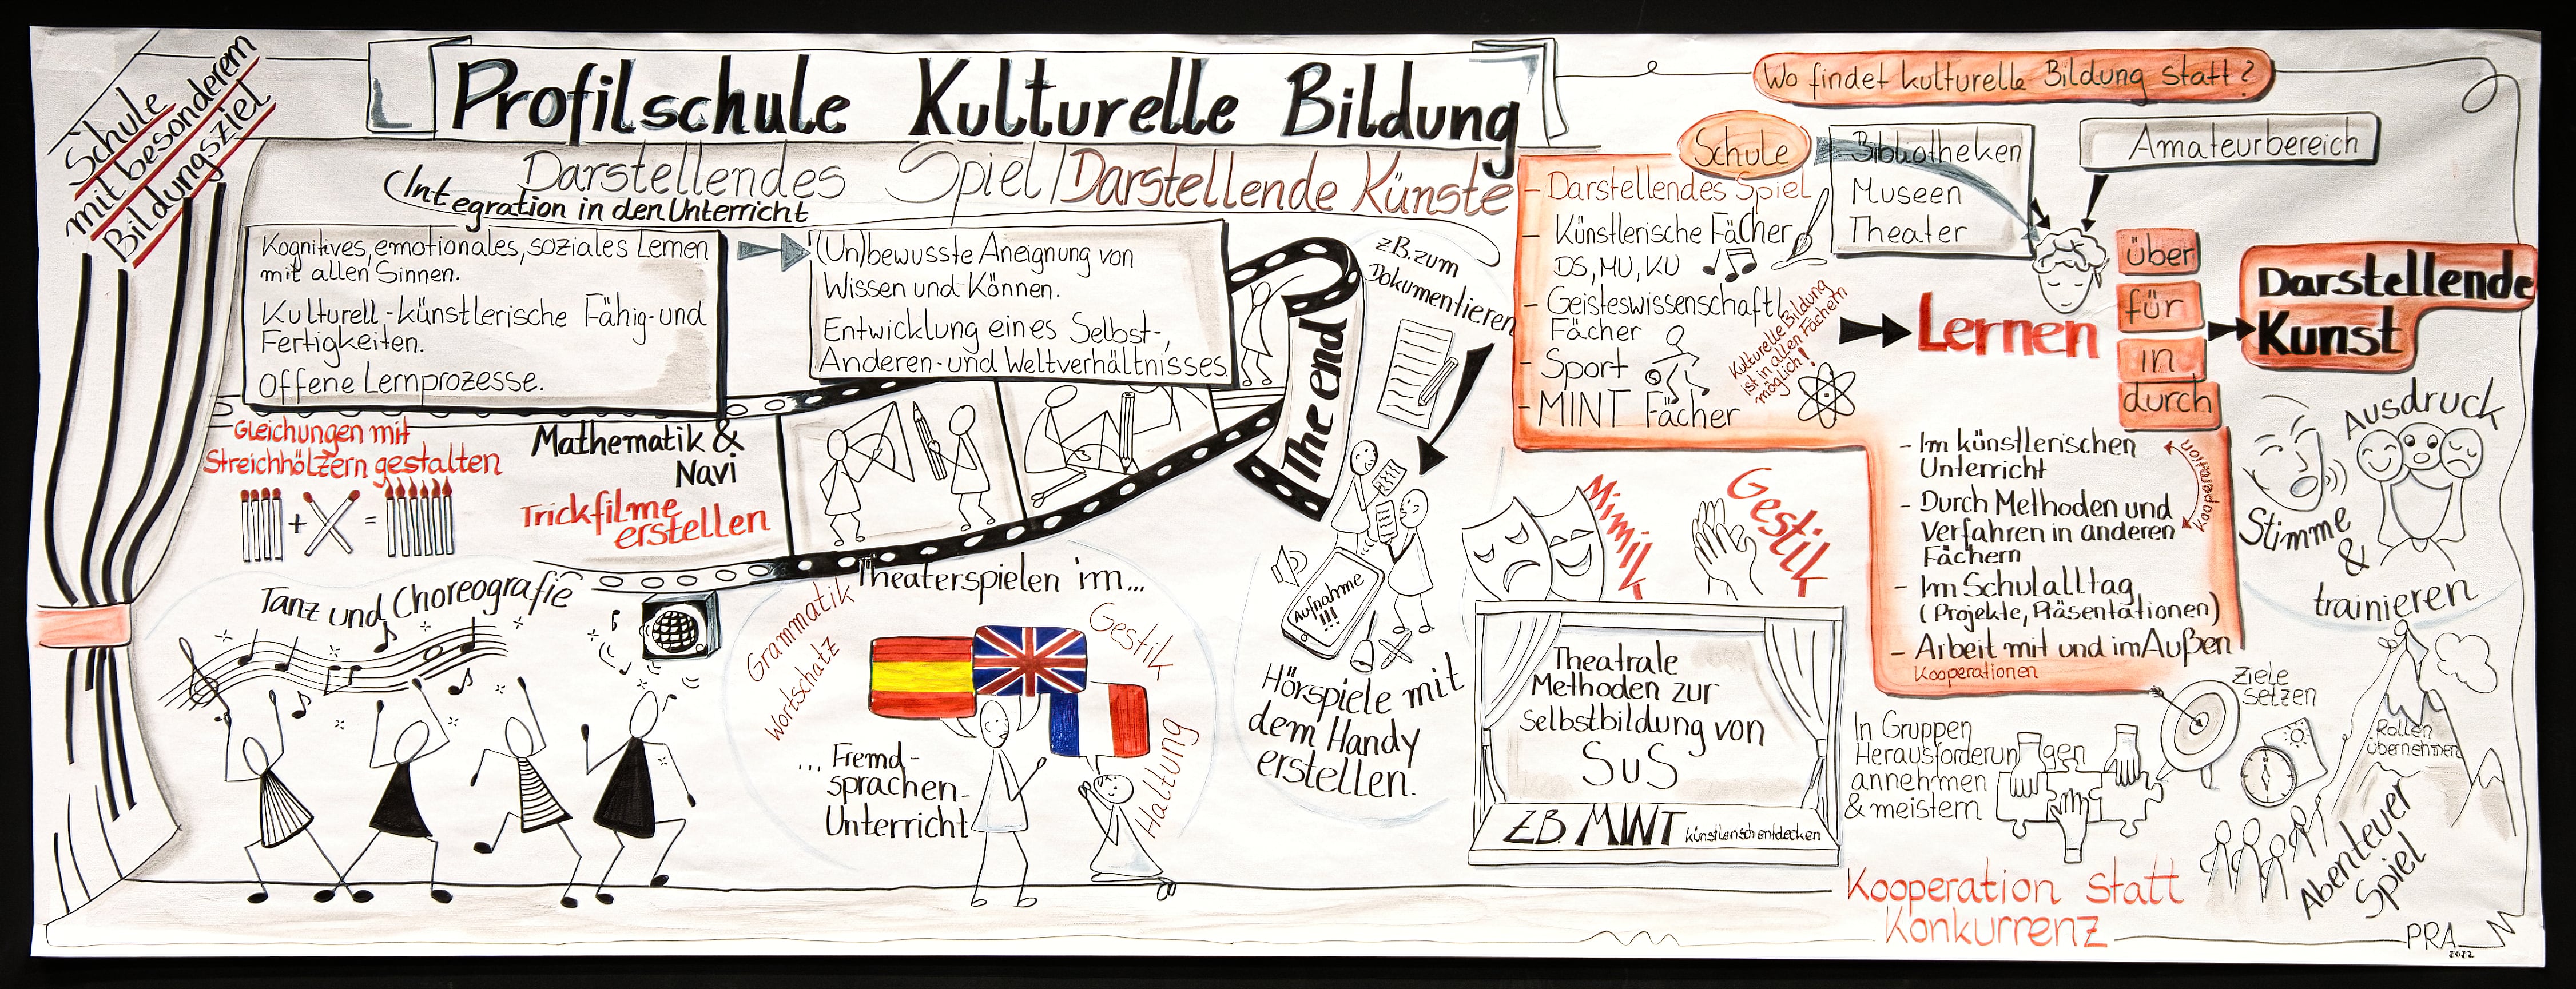 Schule
mit besonderem
Bildungsziel
Profilschule Kulturelle Bildung
Darstellendes Spiel/Darstellende Künste
(Integration in den Unterricht
Kognitives, emotionales, soziales Lernen
mit allen Sinnen.
Kulturell-künstlerische Fähig- und
Fertigkeiten.
Offene Lernprozesse.
(Un)bewusste Aneignung von
Wissen und Können.
Entwicklung eines Selbst-,
Anderen- und Weltverhältnisses.
The end
Gleichungen mit
Streichhölzern gestalten
+ =
Mathematik &
Navi
Trickfilme
erstellen
Tanz und Choreografie
Theaterspielen im...
Grammatik
Wortschatz
Gestik
Haltung
... Fremd-
sprachen-
Unterricht
z.B. zum
Dokumentieren
Aufnahme
!!!
Hörspiele mit
dem Handy
erstellen.
Wo findet kulturelle Bildung statt?
Schule
- Darstellendes Spiel
- Künstlerische Fächer
DS, MU, KU
- Geisteswissenschaftl.
Fächer
- Sport
- MINT Fächer
Kulturelle Bildung
ist in allen Fächern
möglich!
Bibliotheken
Museen
Theater
Amateurbereich
Lernen
über
für
in
durch
Darstellende
Kunst
- Im künstlerischen
Unterricht
- Durch Methoden und
Verfahren in anderen
Fächern
- Im Schulalltag
(Projekte, Präsentationen)
- Arbeit mit und im Außen
Kooperationen
Kooperation
Mimik
Gestik
Theatrale
Methoden zur
Selbstbildung von
SuS
Z.B. MINT künstlerisch entdecken
Ausdruck
Stimme
&
trainieren
In Gruppen
Herausforderungen
annehmen
& meistern
Ziele
setzen
Rollen
übernehmen
Abenteuer
Spiel
Kooperation statt
Konkurrenz
PRA
2022